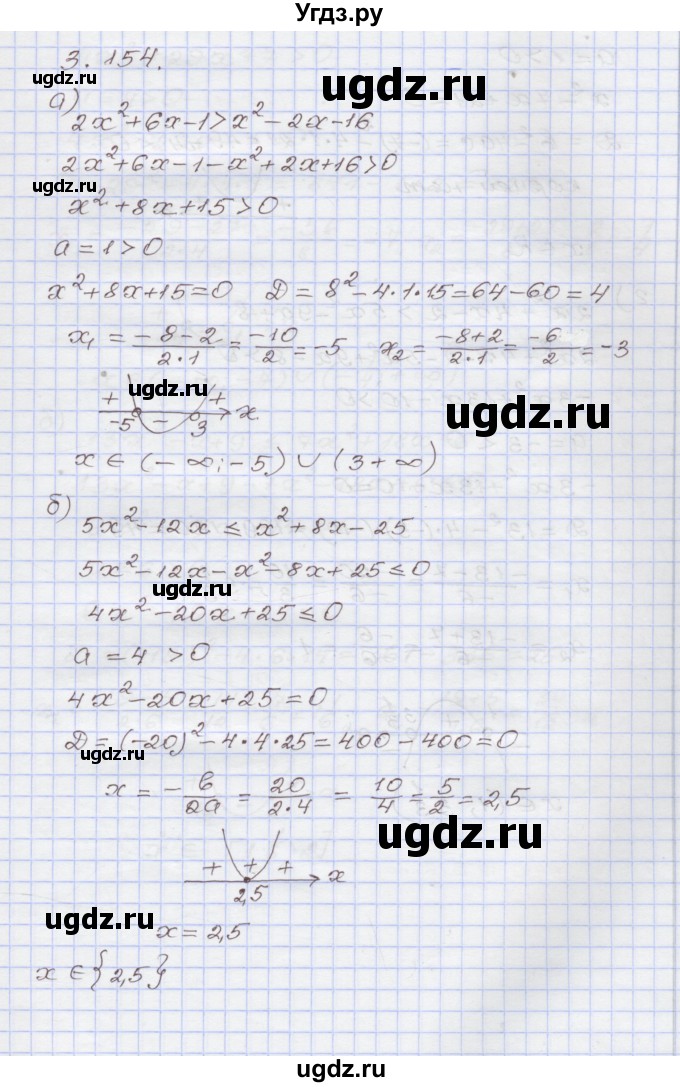 Угдз.ру
3. 154.
ugdz.ru
ugdz.ru
а)
2x²+6x-1>x²-2x-16
ugdz.ru
2x²+6x-1-x²+2x+16>0
ugdz.ru
x²+8x+15>0
a=1>0
x²+8x+15=0 D=8²-4·1·15=64-60=4
x₁ = (-8-2)/(2·1) = (-10)/2 = -5 x₂ = (-8+2)/(2·1) = (-6)/2 = -3
ugdz.ru
ugdz.ru
+ + x
-5 - 3
x ∈ (-∞; -5) ∪ (3 +∞)
б)
5x²-12x ≤ x²+8x-25
ugdz.ru
5x²-12x-x²-8x+25≤0
ugdz.ru
4x²-20x+25≤0
a = 4 >0
ugdz.ru
4x²-20x+25=0
D=(-20)²-4·4·25=400-400=0
ugdz.ru
x = -b/2a = 20/(2·4) = 10/4 = 5/2 = 2,5
ugdz.ru
+ + + x
2,5
ugdz.ru
x=2,5
x ∈ {2,5}
ugdz.ru
ugdz.ru